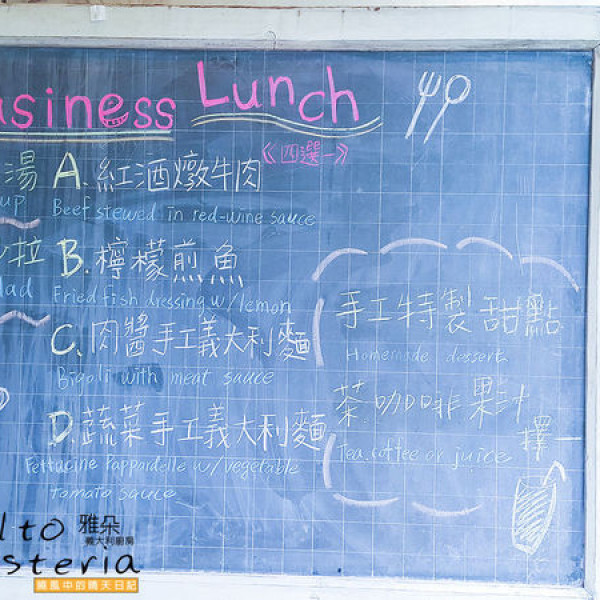 usiness Lunch
《四選一》
湯 A. 紅酒燉牛肉
up Beef stewed in red-wine sauce
拉 B. 檸檬煎魚
lad Fried fish dressing w/ lemon
C. 肉醬手工義大利麵
Bigoli with meat sauce
D. 蔬菜手工義大利麵
Fettucine Pappardelle w/ vegetable
tomato sauce
手工特製甜點
Homemade dessert
茶咖啡果汁擇一
Tea, coffee or juice
lto 雅朵
義大利廚房
steria
曉風中的晴天日記